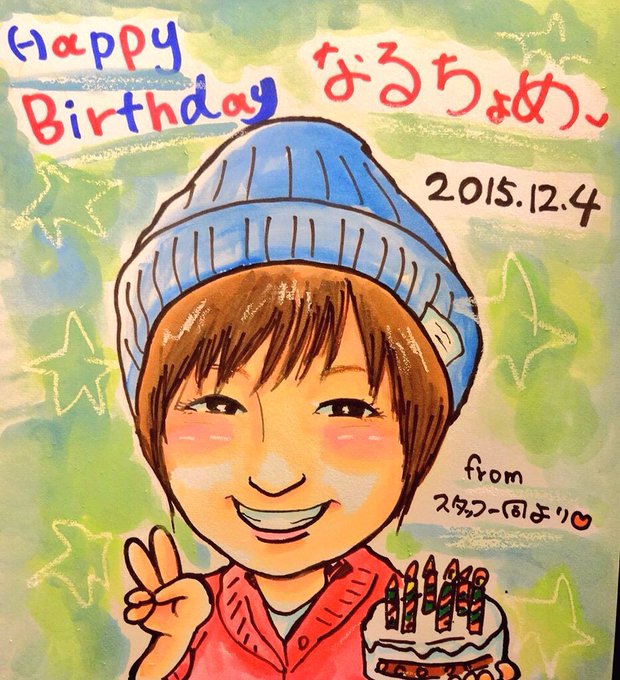 Happy
Birthday
なるちょめ〜
2015.12.4
from
スタッフ一同より